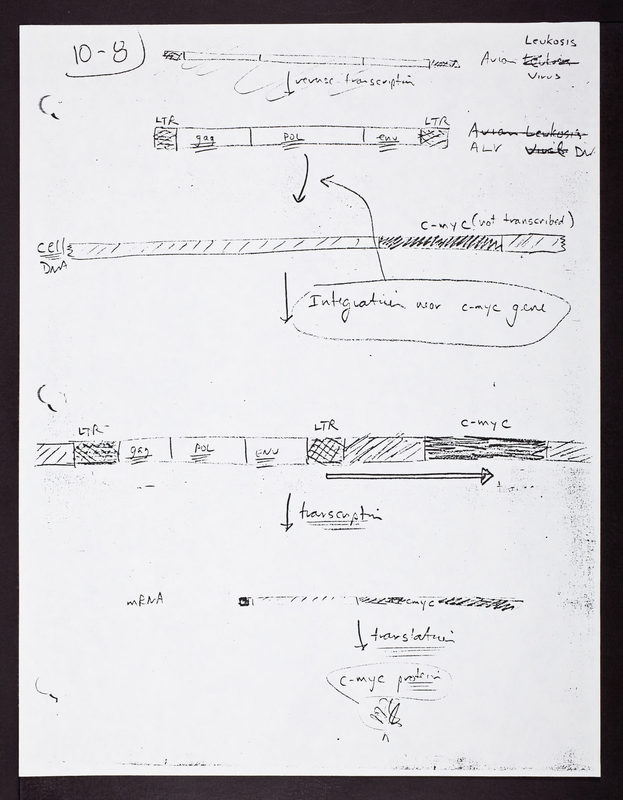 10-8
Leukosis
Avian
Virus
reverse transcription
LTR
LTR
gag
POL
env
Avian Leukosis
ALV Virus DNA
c-myc (not transcribed)
cell
DNA
Integration near c-myc gene
LTR
LTR
c-myc
gag
POL
ENV
transcription
mRNA
c-myc
translation
c-myc protein